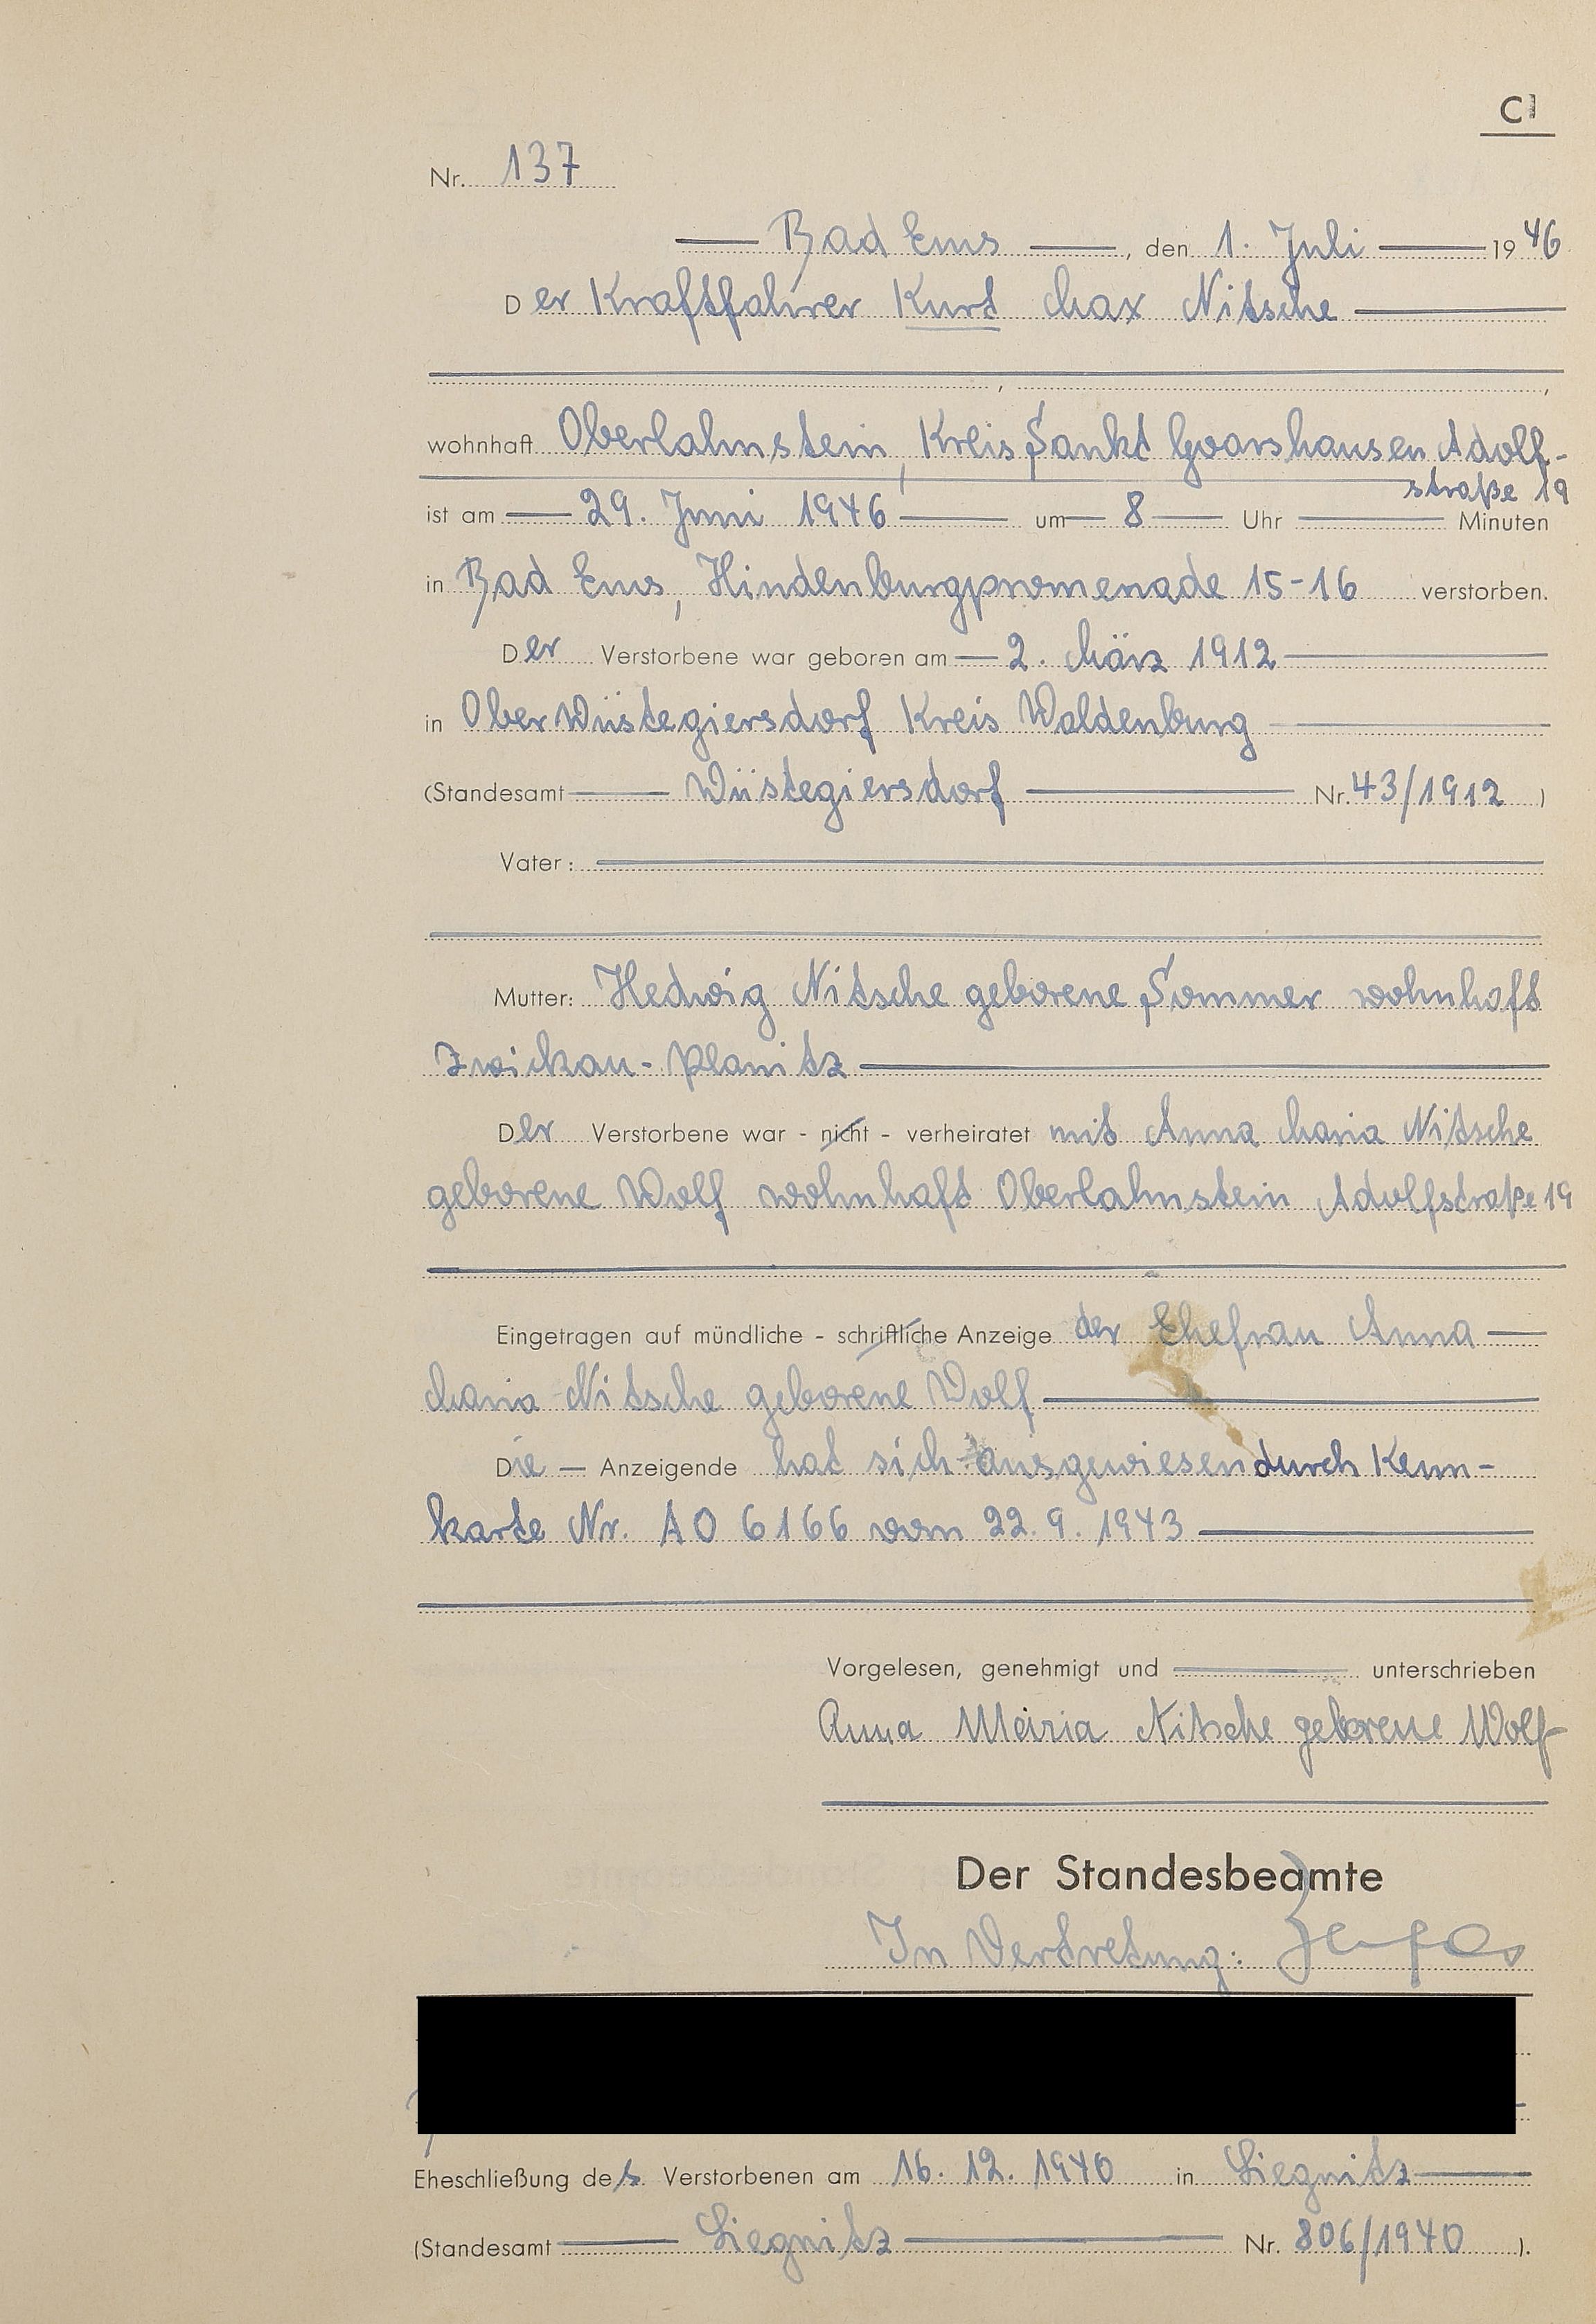 C
Nr. 137
Bad Ems, den 1. Juli 1946
Der Kraftfahrer Kurt Max Nitsche
wohnhaft Oberlahnstein, Kreis Sankt Goarshausen, Adolf-
straße 19
ist am 29. Juni 1946 um 8 Uhr Minuten
in Bad Ems, Hindenburgpromenade 15-16 verstorben.
Der Verstorbene war geboren am 2. März 1912
in Oberwüstegiersdorf Kreis Waldenburg
(Standesamt Wüstegiersdorf Nr. 43/1912 )
Vater:
Mutter: Hedwig Nitsche geborene Sommer wohnhaft
Zwickau-Planitz
Der Verstorbene war - nicht - verheiratet mit Anna Maria Nitsche
geborene Wolf wohnhaft Oberlahnstein Adolfstraße 19
Eingetragen auf mündliche - schriftliche Anzeige der Ehefrau Anna
Maria Nitsche geborene Wolf
Die Anzeigende hat sich ausgewiesen durch Kenn-
karte Nr. A0 6166 vom 22.9.1943
Vorgelesen, genehmigt und unterschrieben
Anna Maria Nitsche geborene Wolf
Der Standesbeamte
In Vertretung:
Eheschließung des Verstorbenen am 16.12.1940 in Liegnitz
(Standesamt Liegnitz Nr. 806/1940 ).